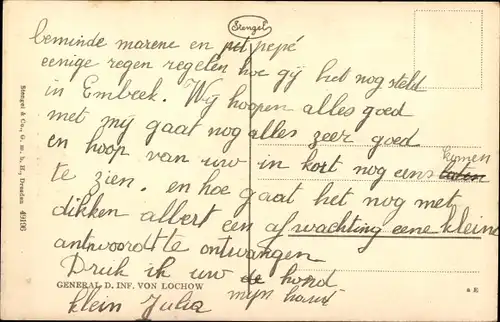 Stengel
beminde marene en pepé
eenige regen regelen hoe gÿ het nog steld
in Embeek. Wÿ hoopen alles goed
met mÿ gaat nog alles zeer goed
en hoop van uw in kort nog eens kunen
te zien. en hoe gaat het nog met
dikken albert een afwachting eene kleine
antwoordt te ontwangen
Druk ik uw de hond
mijn hand
klein Julia
GENERAL D. INF. VON LOCHOW
Stengel & Co., G. m. b. H., Dresden 49106